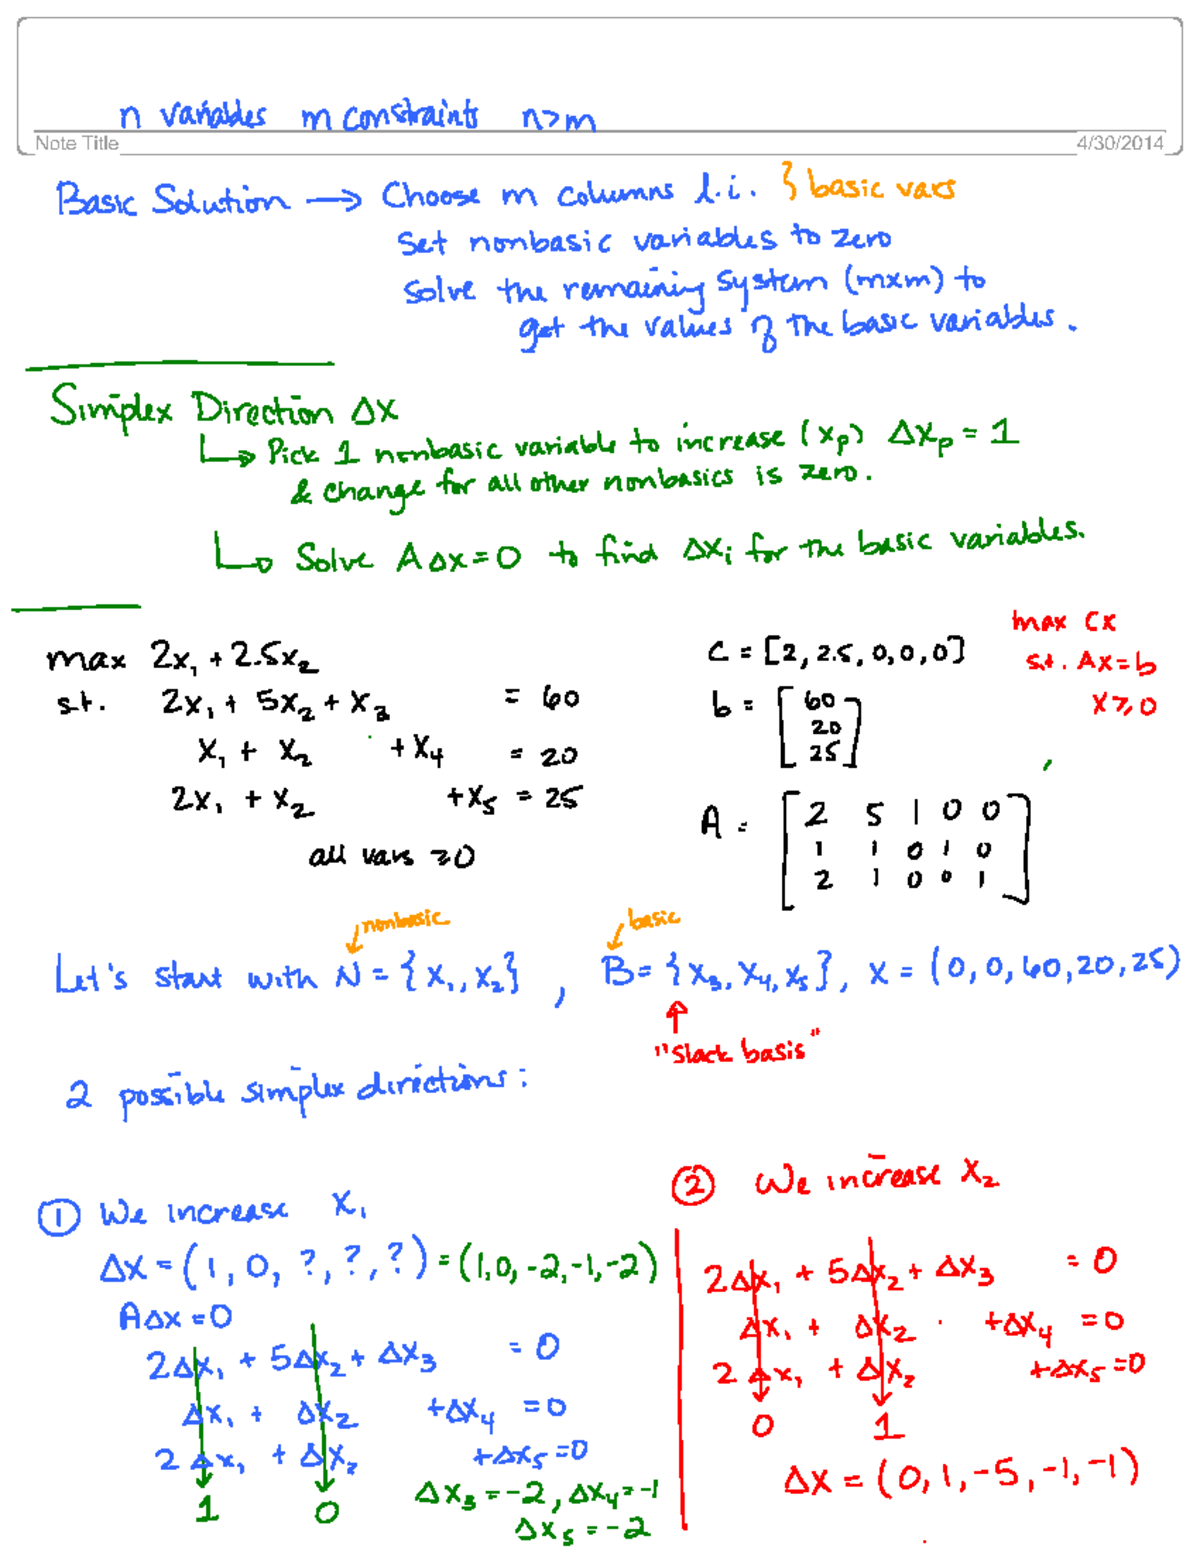 n variables m constraints n>m
Note Title 4/30/2014
Basic Solution → Choose m columns l.i. } basic vars
Set nonbasic variables to zero
Solve the remaining system (mxm) to
get the values of the basic variables.
Simplex Direction Δx
↳ Pick 1 nonbasic variable to increase (xₚ) Δxₚ = 1
& change for all other nonbasics is zero.
↳ Solve AΔx=0 to find Δxᵢ for the basic variables.
max 2x₁ + 2.5x₂
s.t. 2x₁ + 5x₂ + x₃ = 60
x₁ + x₂ + x₄ = 20
2x₁ + x₂ + x₅ = 25
all vars ≥0
C = [2, 2.5, 0, 0, 0]
b = [60
20
25]
A = [2 5 1 0 0
1 1 0 1 0
2 1 0 0 1]
max Cx
s.t. Ax=b
x≥0
nonbasic
basic
Let's start with N = {x₁, x₂}, B = {x₃, x₄, x₅}, x = (0, 0, 60, 20, 25)
↑
"Slack basis"
2 possible simplex directions:
① We increase x₁
Δx = (1, 0, ?, ?, ?) = (1, 0, -2, -1, -2)
AΔx = 0
2Δx₁ + 5Δx₂ + Δx₃ = 0
Δx₁ + Δx₂ + Δx₄ = 0
2Δx₁ + Δx₂ + Δx₅ = 0
1 0
Δx₃ = -2, Δx₄ = -1
Δx₅ = -2
② We increase x₂
2Δx₁ + 5Δx₂ + Δx₃ = 0
Δx₁ + Δx₂ + Δx₄ = 0
2Δx₁ + Δx₂ + Δx₅ = 0
0 1
Δx = (0, 1, -5, -1, -1)